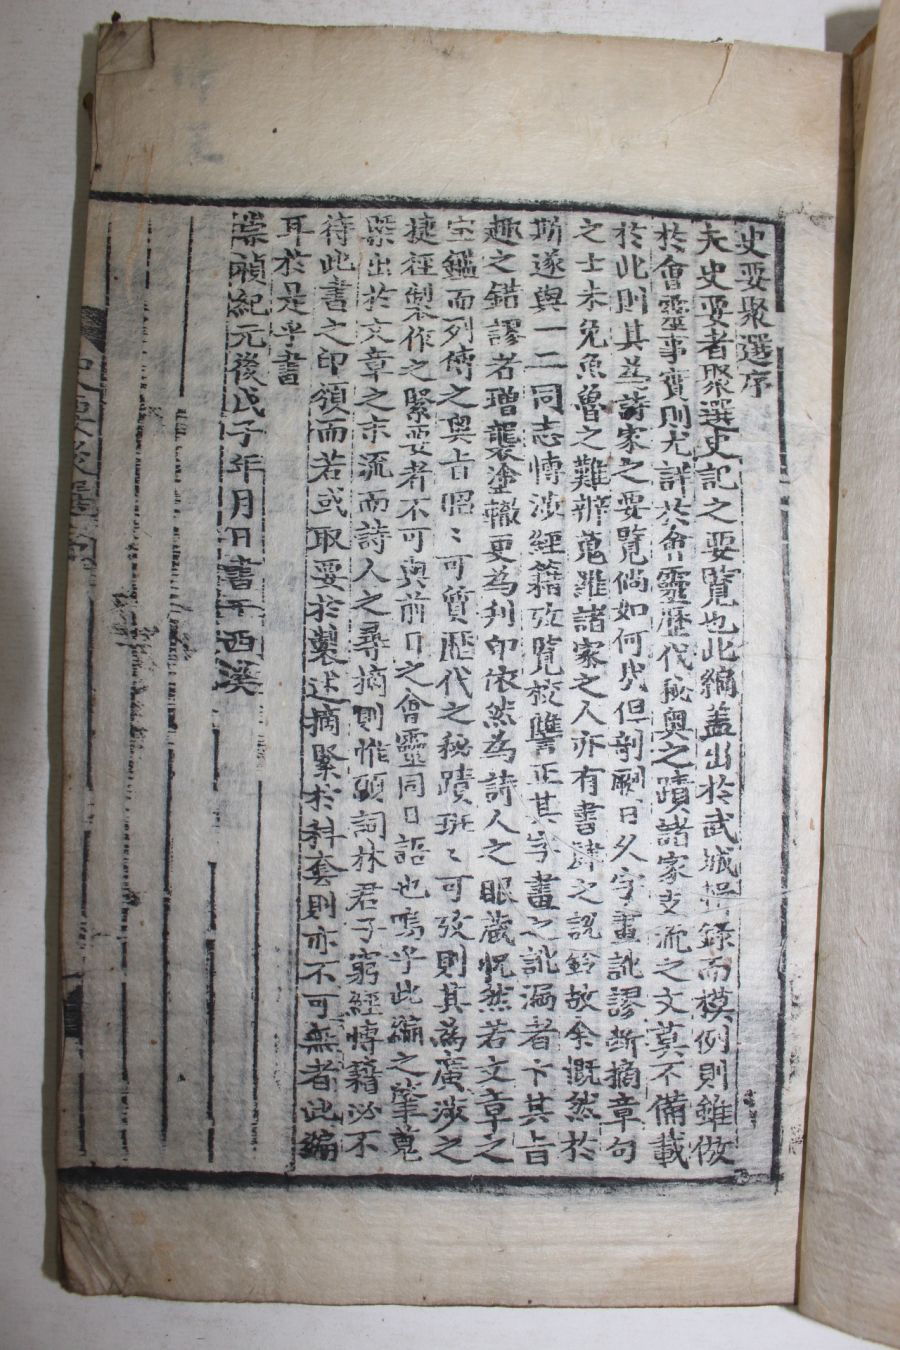 史要聚選序
夫史要者聚選史記之要覽也此編盖出於武城摺錄而模例則雖倣
於會靈事實則尤詳於會靈歷代秘奧之蹟諸家支流之文莫不備載
於此則其為詩家之要覽倘如何哉但剞劂日久字畫訛謬斷摘章句
之士未免魚魯之難辨蒐羅諸家之人亦有書肆之説鈴故余慨然於
斯遂與一二同志博涉經籍攷覽校讐正其字畫之訛漏者卞其旨
趣之錯謬者璔襲塗轍更為刋印依然為詩人之眼藏怳然若文章之
宝鑑而列傳之奥旨昭〻可質歷代之秘蹟班〻可攷則其為廣涉之
捷徑製作之緊要者不可與前日之會靈同日語也嗚乎此編之肇
槩出於文章之末流而詩人之尋摘則惟願詞林君子窮經博籍必不
待此書之印頒而若或取要於製述摘緊於科套則亦不可無者此編
耳於是乎書
崇禎紀元後戊子年月日書于西溪
史要聚選